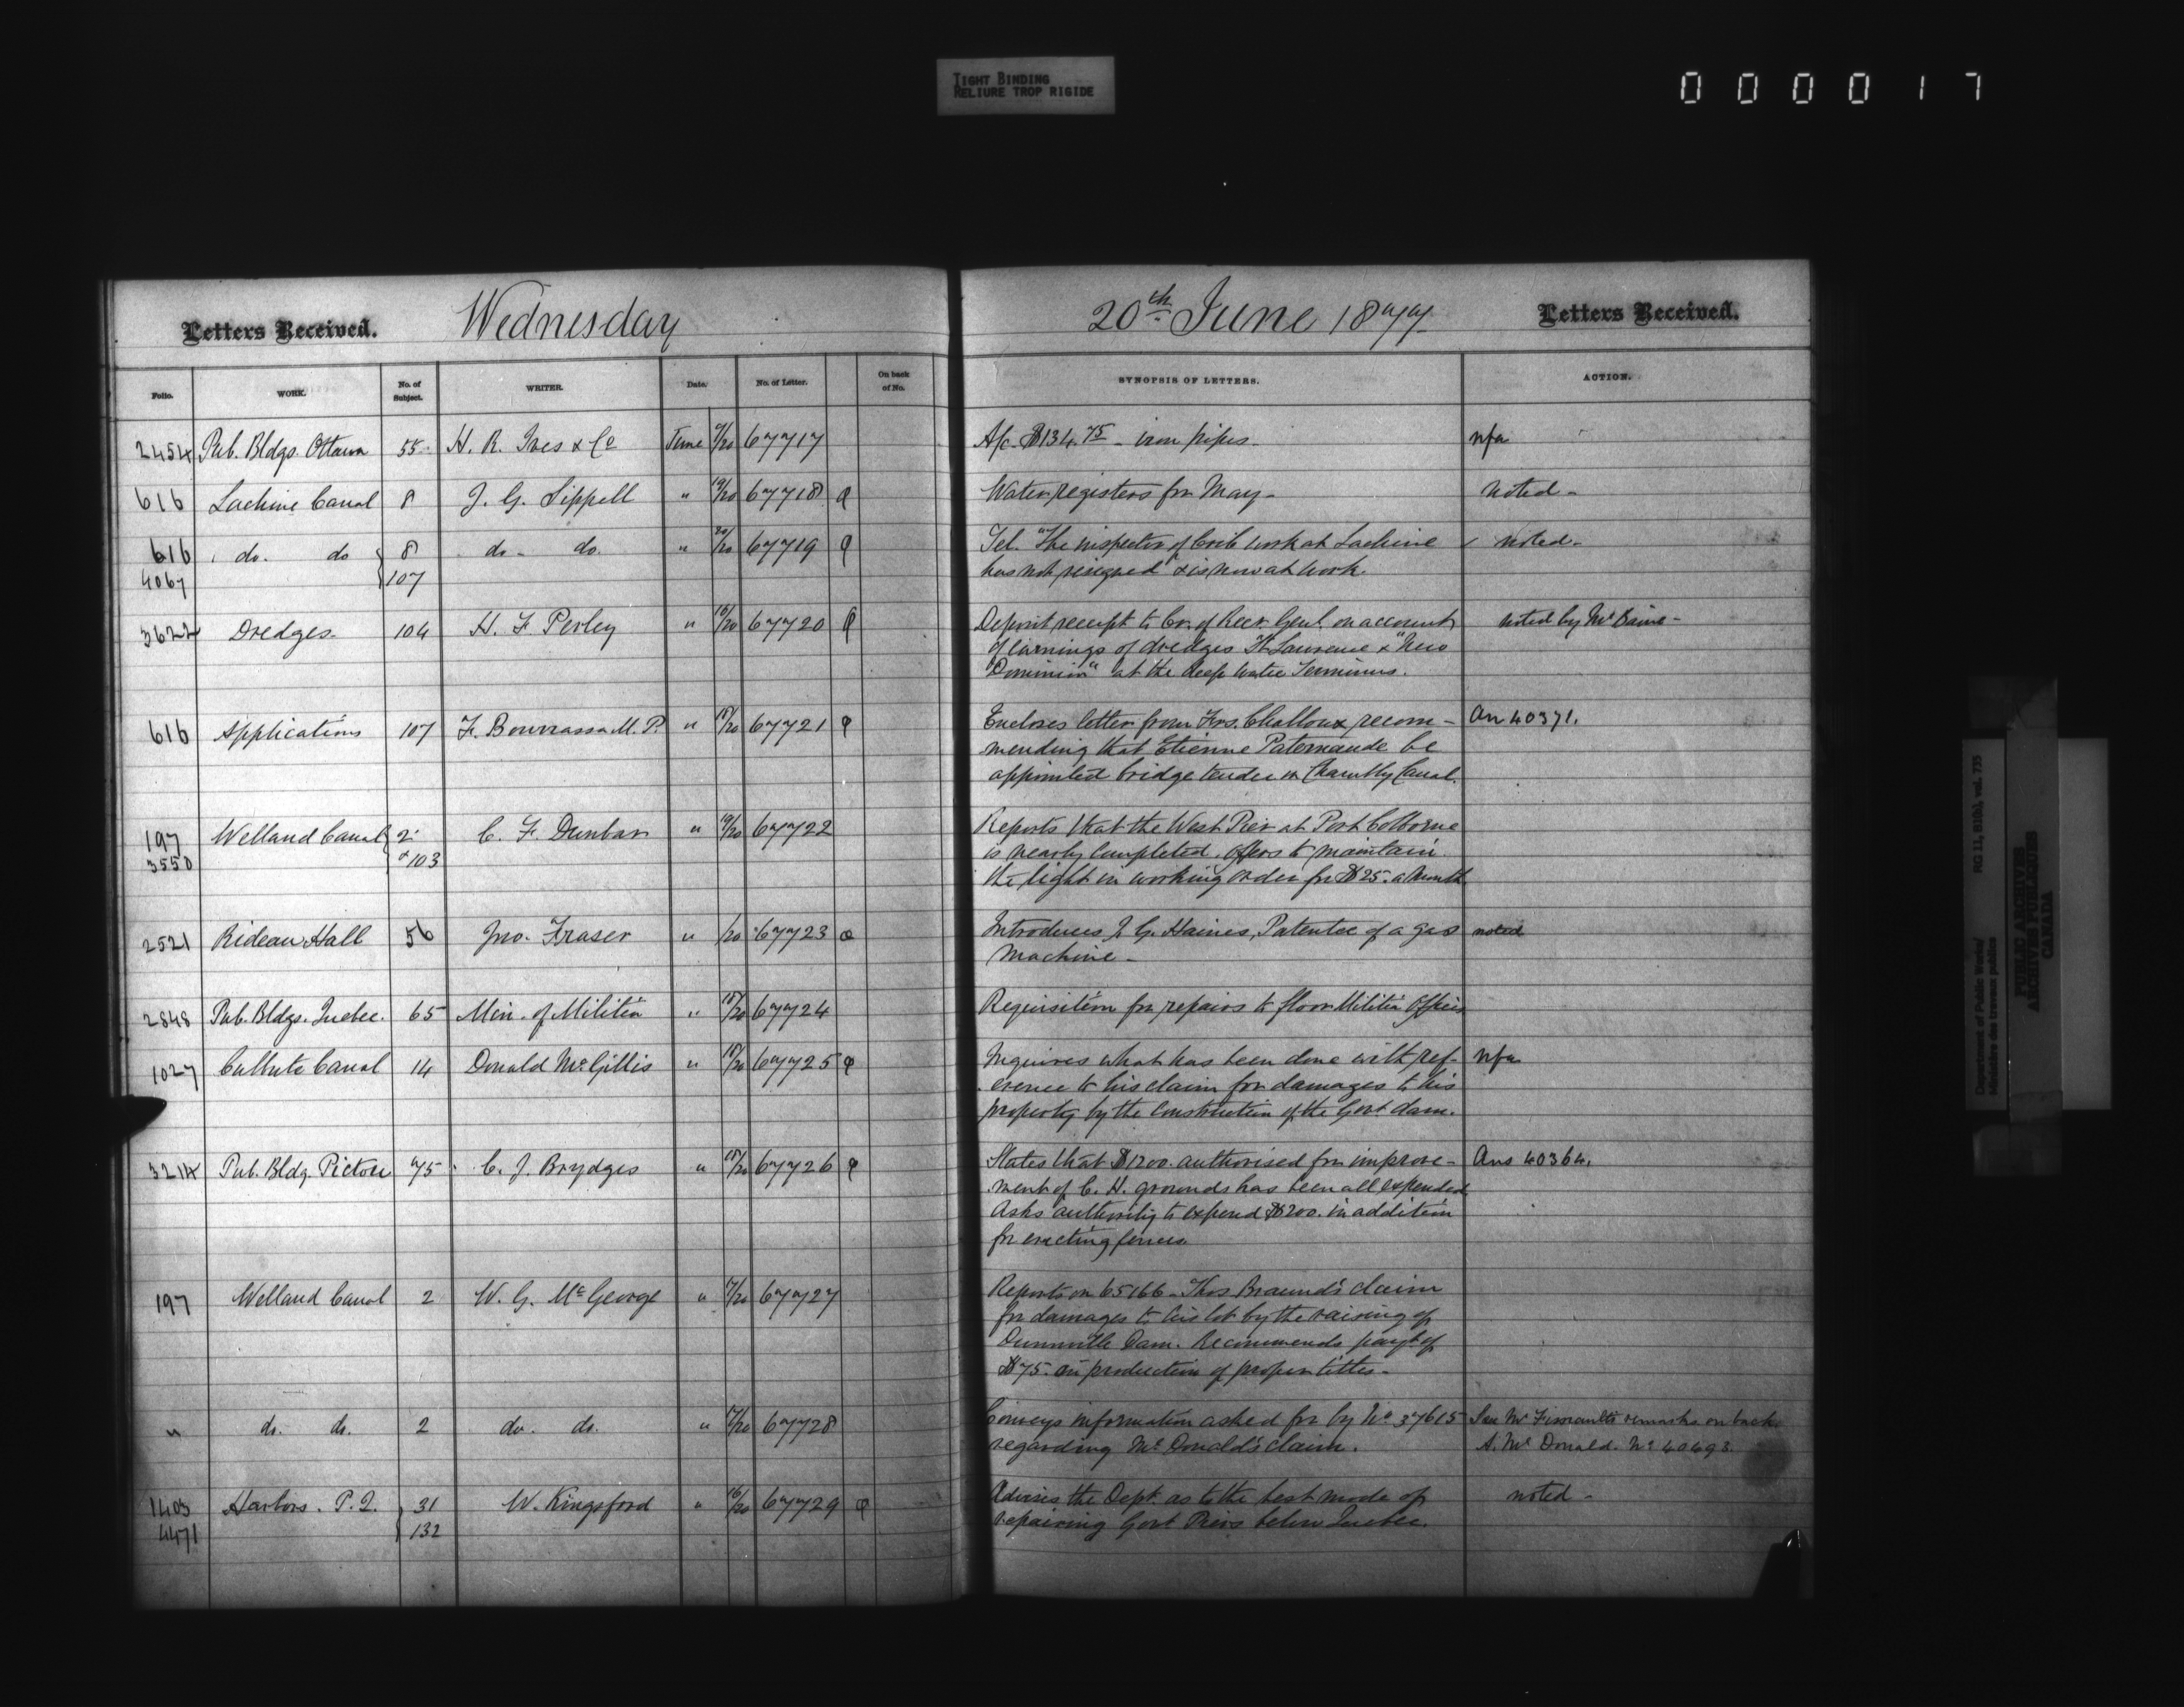 TIGHT BINDING
RELIURE TROP RIGIDE
000017
Letters Received. Wednesday 20th June 1877 Letters Received.
Folio. WORK. No. of Subject. WRITER. Date. No. of Letter. On back of No. SYNOPSIS OF LETTERS. ACTION.
2454 Pub. Bldgs. Ottawa 55 H. R. Ives & Co June /20 67717 A/c. $134.75 - iron pipes. nfa
616 Lachine Canal 8 J. G. Sippell " 19/20 67718 Water registers for May - noted -
616 do. do 8 do - do. " 20/20 67719 Tel. "The inspector of Crib work at Lachine noted -
4067 107 has not resigned" & is now at work.
3622 Dredges - 104 H. F. Perley " 16/20 67720 Deposit receipt to Cr. of Recr. Genl. on account noted by Mr
of earnings of dredges "St. Lawrence & "New
Dominion" at the deep water Terminus.
616 Applications 107 F. Bourrassa M.P. " 18/20 67721 Encloses letter from Frs. Challoux recom - An 40371.
mending that Etienne Patenaude be
appointed bridge tender on Chambly Canal.
197 Welland Canal 2 C. F. Dunbar " 19/20 67722 Reports that the West Pier at Port Colborne
3550 & 103 is nearly completed. Offers to maintain
the light in working order for $25. a Month
2521 Rideau Hall 56 Jno. Fraser " /20 67723 Introduces J. G. Haines, Patentee of a gas noted
Machine -
2848 Pub. Bldgs. Quebec. 65 Min. of Militia " 18/20 67724 Requisition for repairs to floor Militia Offices
1027 Culbute Canal 14 Donald McGillis " 18/20 67725 Inquires what has been done with ref- nfa
erence to his claim for damages to his
property by the construction of the Govt dam.
3214 Pub. Bldg. Pictou 75 C. J. Brydges " 18/20 67726 States that $1200. authorised for improve - Ans 40364.
ment of C. H. grounds has been all expended
Asks authority to expend $200. in addition
for erecting fences.
197 Welland Canal 2 W. G. McGeorge " /20 67727 Reports on 65166 - Thos Braund's claim
for damages to his lot by the raising of
Dunnville Dam. Recommends payt of
$75. on production of proper titles -
" do. do. 2 do. do. " /20 67728 Conveys information asked for by No 37615 See Mr remarks on back
regarding McDonald's claim. A. McDonald. No 40493.
1403 Harbors. P.Q. 31 W. Kingsford " 16/20 67729 Advises the Dept. as to the best mode of noted -
4471 132 repairing Govt Piers below Quebec.
Department of Public Works/
Ministère des travaux publics
RG 11, B1(b), vol. 735
PUBLIC ARCHIVES
ARCHIVES PUBLIQUES
CANADA